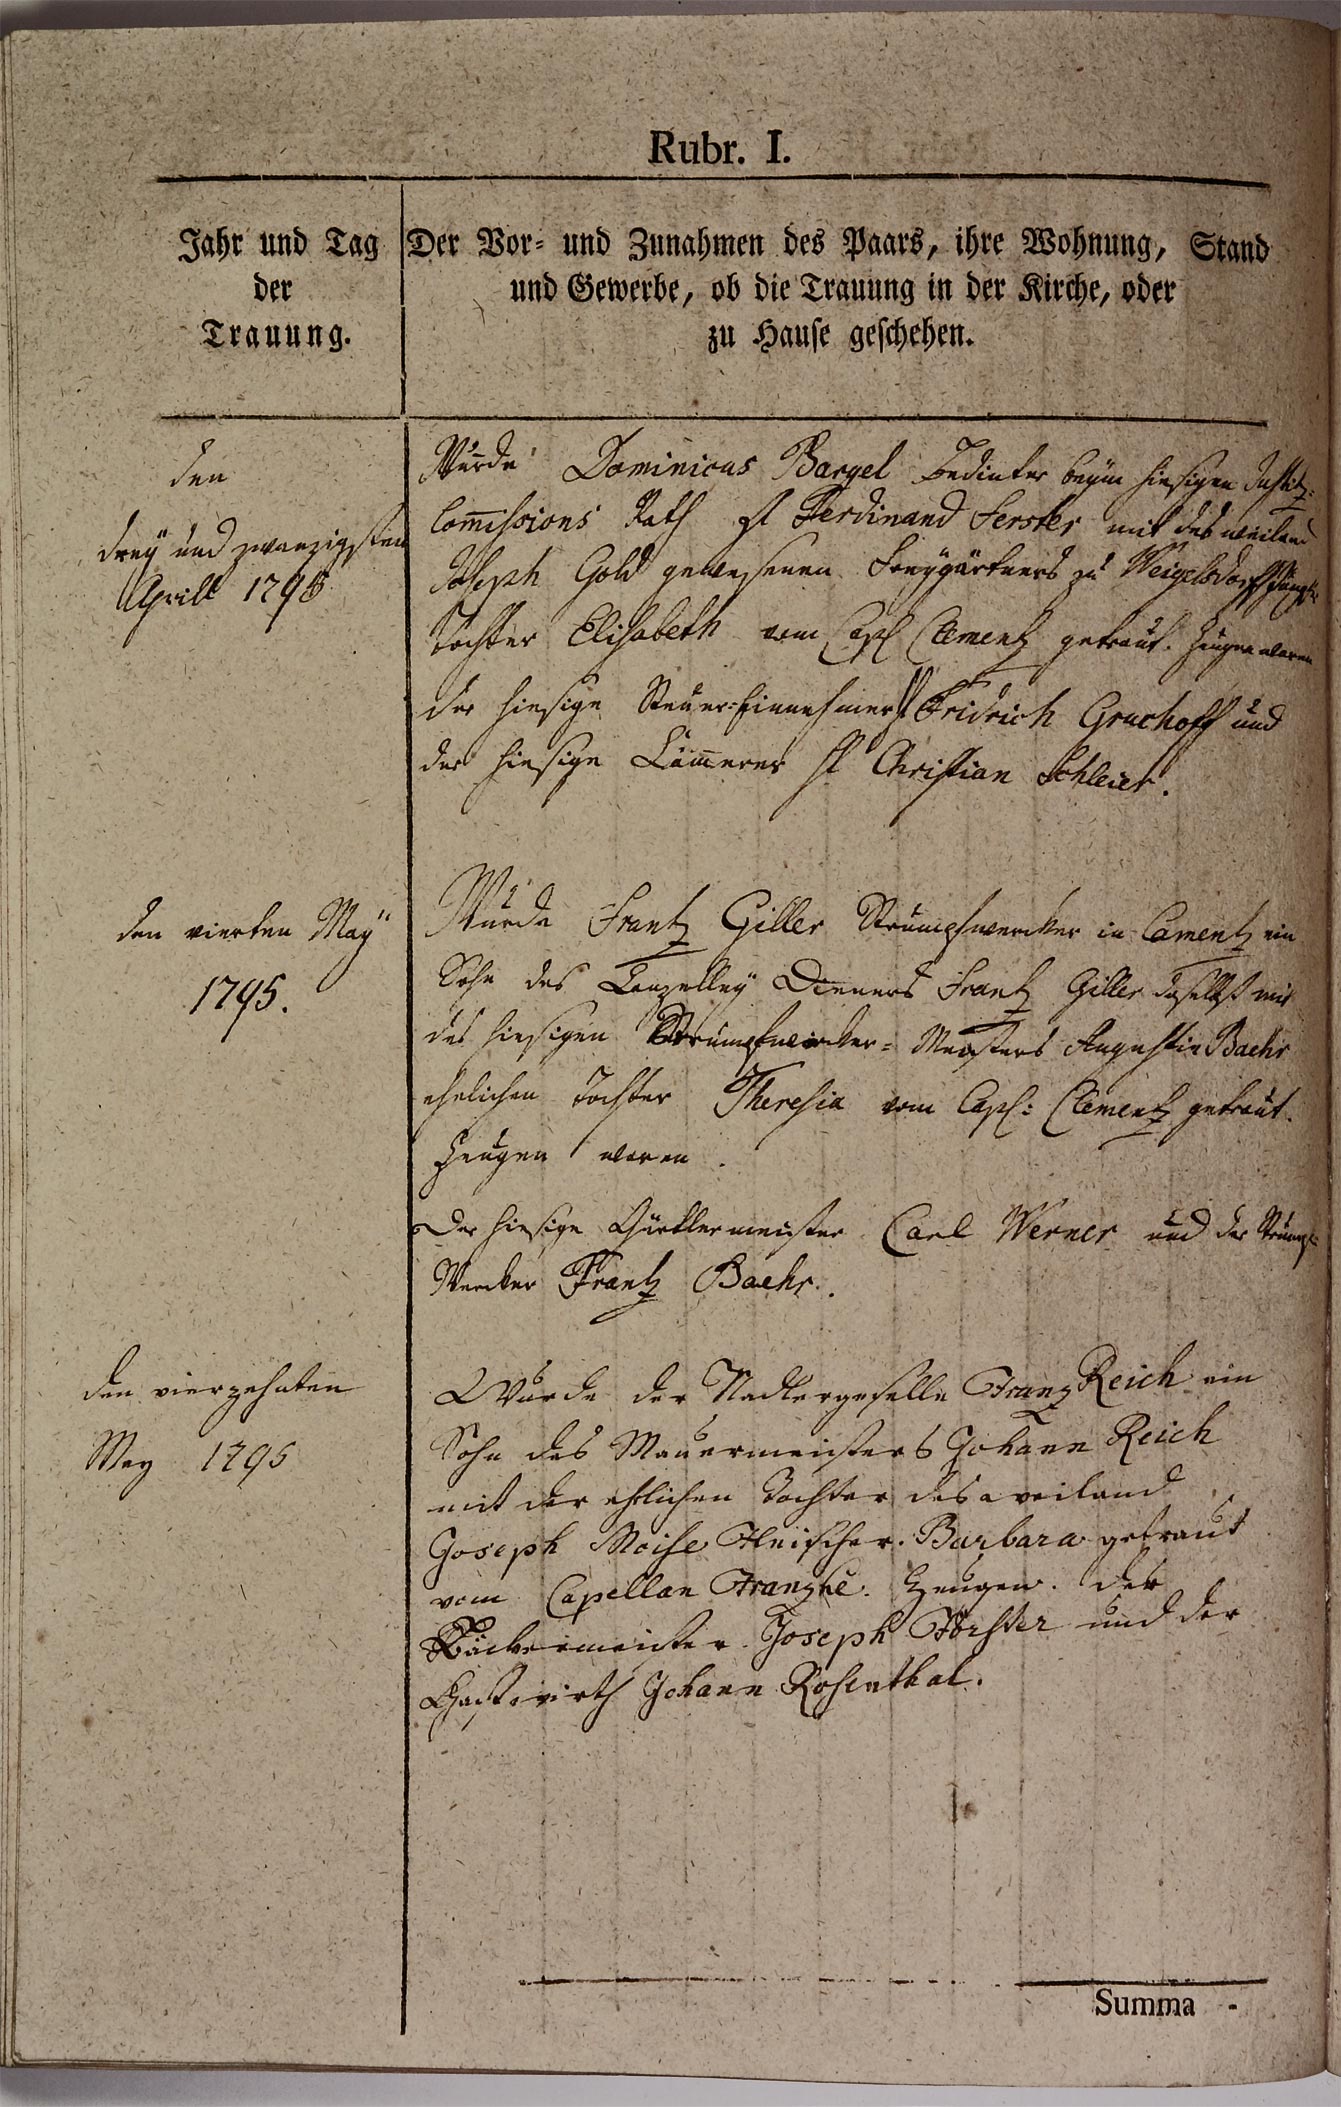 Rubr. I.
Jahr und Tag
der
Trauung.
Der Vor- und Zunahmen des Paars, ihre Wohnung, Stand
und Gewerbe, ob die Trauung in der Kirche, oder
zu Hause geschehen.
den
drey und zwanzigsten
Aprill 1795
Wurde Dominicus Bargel Bedinter beym hiesigen Justitz-
Com̄issions Rath H Ferdinand Ferster mit des weiland
Joseph Gold gewesenen Freygärtners zu Weigelsdorff
Tochter Elisabeth vom Capl Clementz getraut. Zeugen waren
der hiesige Steuer-Einnehmer H Fridrich Gruchoff und
der hiesige Cäm̄erer H Christian Schleier.
den vierten May
1795.
Wurde Frantz Giller Strumpfwercker in Camentz ein
Sohn des Canzelley Dieners Frantz Giller daselbst mit
des hiesigen Strumpfwircker- Meisters Augustin Baehr
ehelichen Tochter Theresia vom Capl: Clementz getraut.
Zeugen waren.
Der hiesige Gürtlermeister Carl Werner und der Strumpf-
Wercker Frantz Baehr.
den vierzehnten
May 1795
Wurde der Nadlergeselle Franz Reich ein
Sohn des Mauermeisters Johann Reich
mit der ehlichen Tochter des weiland
Joseph Moise Fleischer. Barbara getraut
vom Capellan Franzke. Zeugen. der
Bäckermeister Joseph Förster und der
Gastwirth Johann Rosenthal.
Summa -